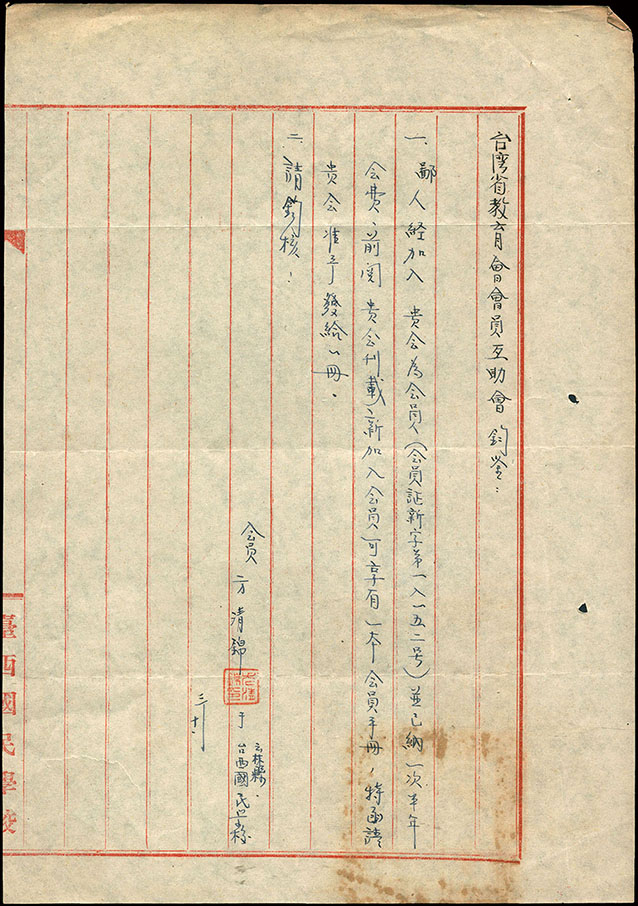 台灣省教育會會員互助會 鈞鑒：
一、鄙人経加入 貴会為会員（会員証新字第一八一五二号）並已納一次半年
会費，前閱 貴会刊載，新加入会員，可享有一本会員手冊，特函請
貴会准予發給乙冊．
二、請鈞核：
会員 方清錦 于 云林縣．
台西國民学校
三、十、
臺西國民學校